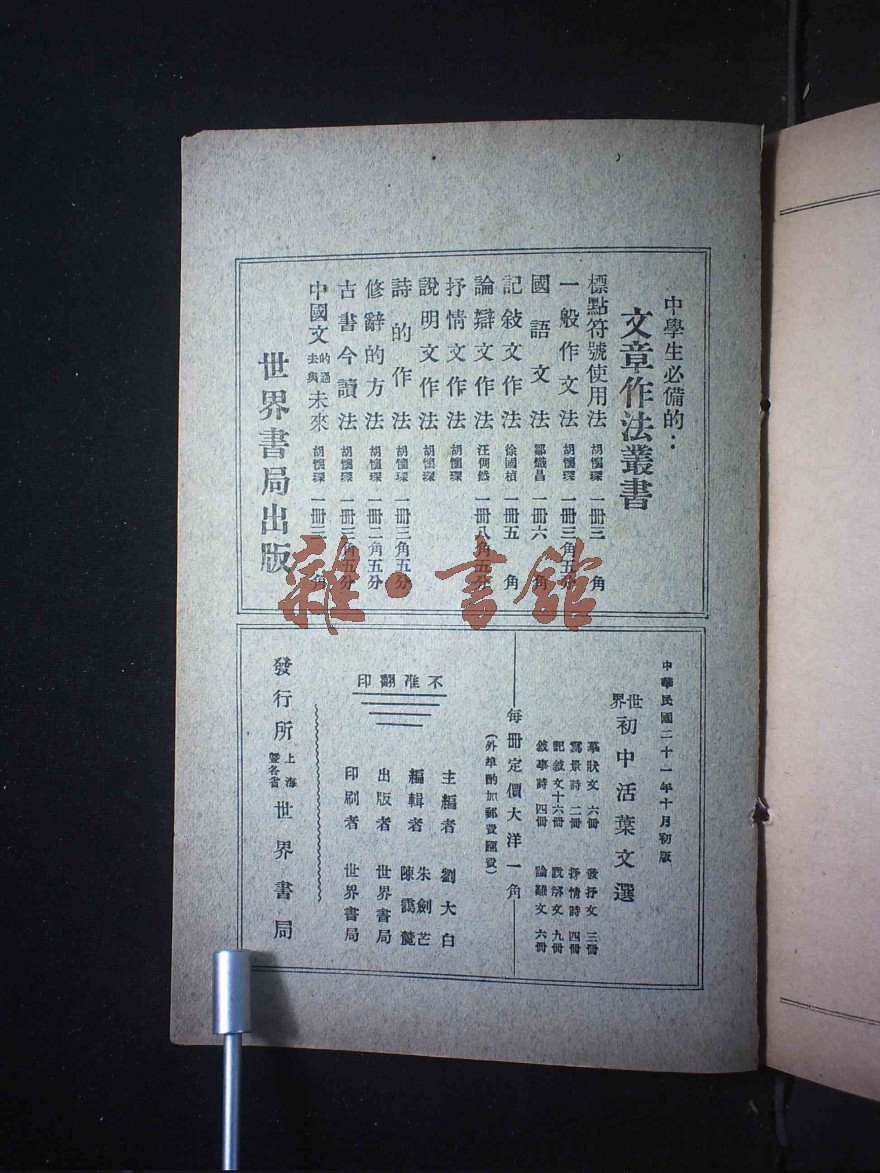 中學生必備的：
文章作法叢書
標點符號使用法 胡懷琛 一冊三角
一般作文法 胡懷琛 一冊三角五分
國語文法 鄒熾昌 一冊六角
記敍文作法 徐國楨 一冊五角
論辯文作法 汪倜然 一冊八角五分
抒情文作法 胡懷琛
說明文作法 胡懷琛
詩的作法 胡懷琛 一冊三角五分
修辭的方法 胡懷琛 一冊二角五分
古書今讀法 胡懷琛 一冊三角五分
中國文的過去與未來 胡懷琛 一冊三角
世界書局出版
雜·書館
中華民國二十一年十月初版
世界初中活葉文選
摹狀文 六冊 發抒文 三冊
寫景詩 二冊 抒情詩 四冊
記敘文十六冊 說解文 九冊
敘事詩 四冊 論難文 六冊
每冊定價大洋一角
(外埠酌加郵費匯費)
不准翻印
主編者 劉大白
編輯者 朱劍芒 陳靄麓
出版者 世界書局
印刷者 世界書局
發行所 上海暨各省 世界書局